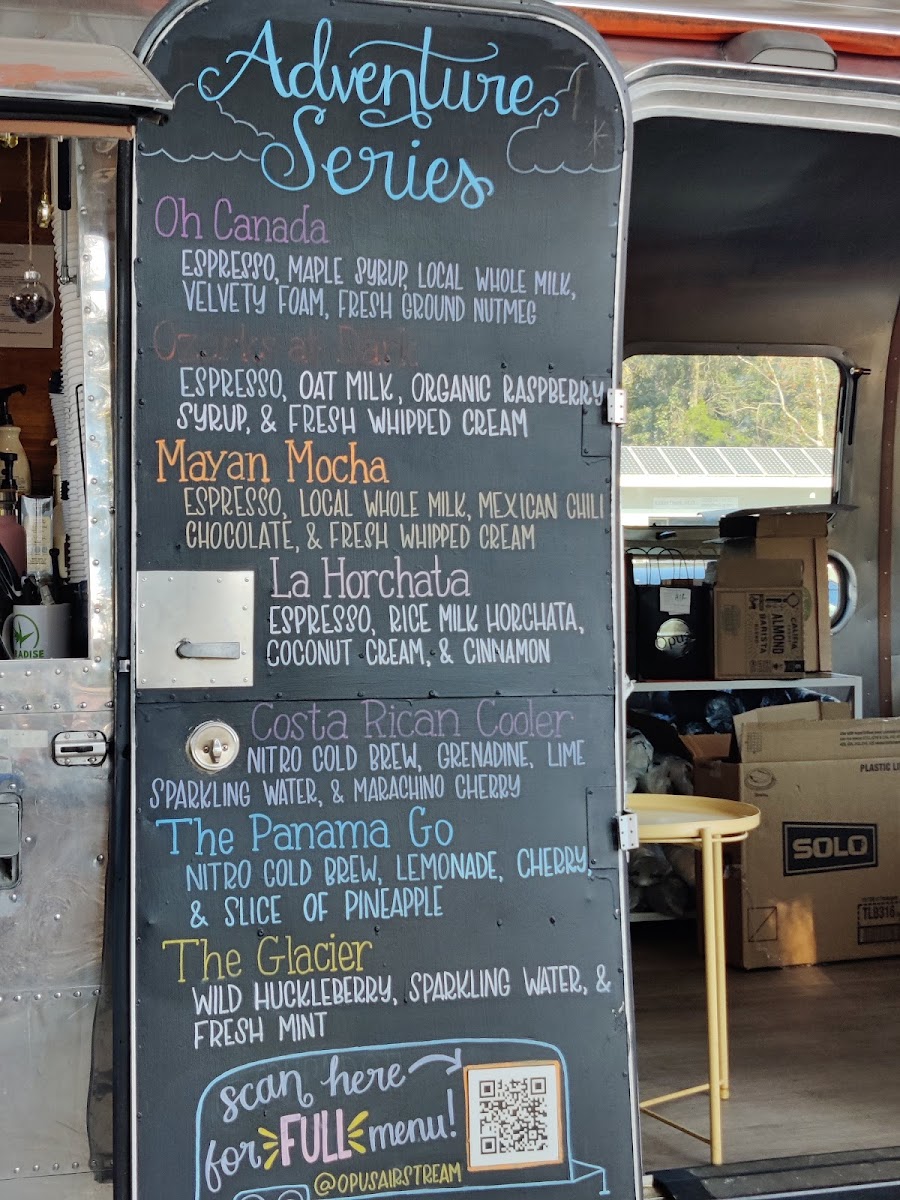 Adventure
Series
Oh Canada
ESPRESSO, MAPLE SYRUP, LOCAL WHOLE MILK,
VELVETY FOAM, FRESH GROUND NUTMEG
Ozarks at Dark
ESPRESSO, OAT MILK, ORGANIC RASPBERRY
SYRUP, & FRESH WHIPPED CREAM
Mayan Mocha
ESPRESSO, LOCAL WHOLE MILK, MEXICAN CHILI
CHOCOLATE, & FRESH WHIPPED CREAM
La Horchata
ESPRESSO, RICE MILK HORCHATA,
COCONUT CREAM, & CINNAMON
Costa Rican Cooler
NITRO COLD BREW, GRENADINE, LIME
SPARKLING WATER, & MARACHINO CHERRY
The Panama Go
NITRO COLD BREW, LEMONADE, CHERRY,
& SLICE OF PINEAPPLE
The Glacier
WILD HUCKLEBERRY, SPARKLING WATER, &
FRESH MINT
scan here
for FULL menu!
@OPUSAIRSTREAM
ADISE
CALIFIA
ALMOND
BARISTA
PLASTIC LI
SOLO
TLB316